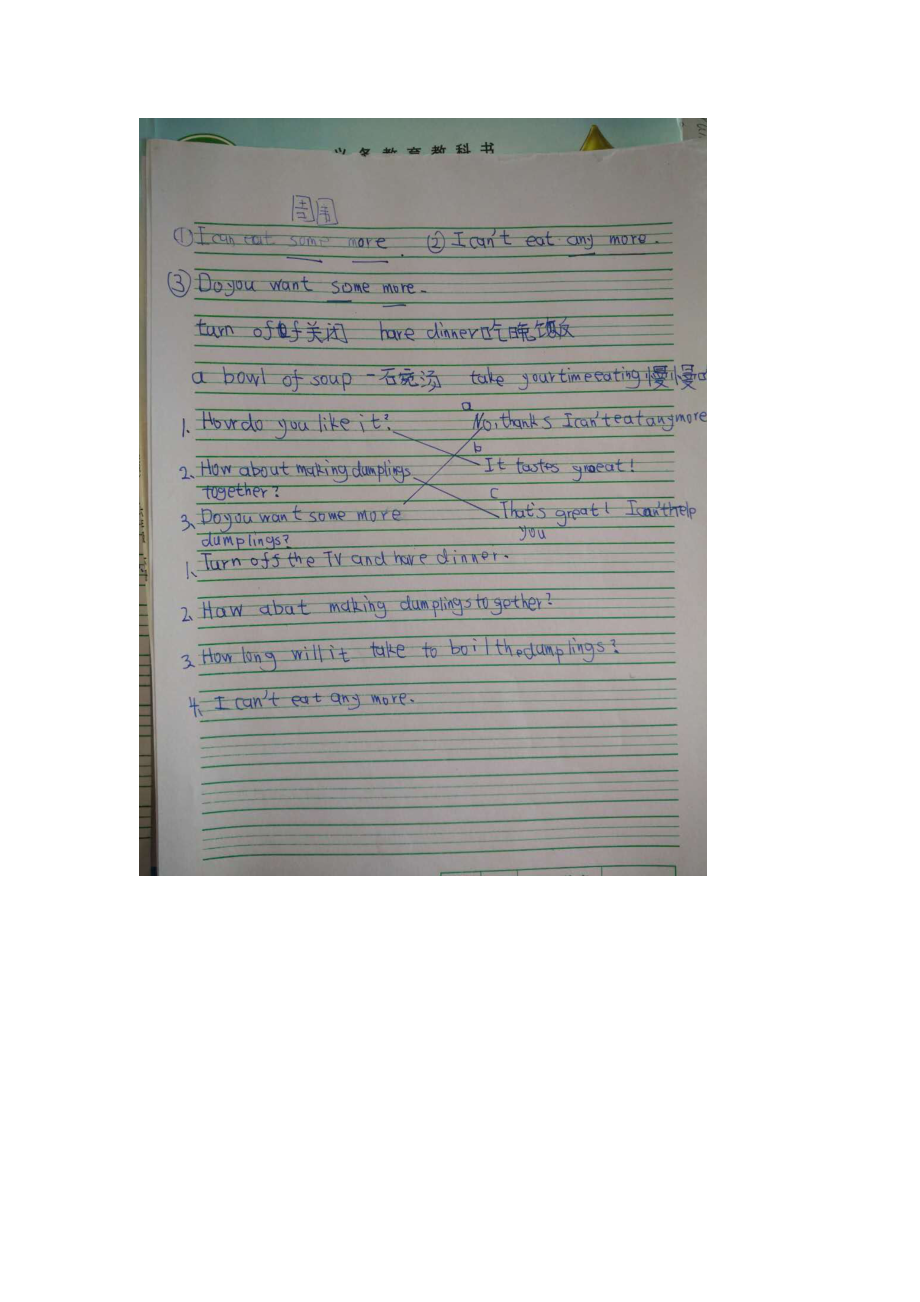 义务教育教科书
① I can eat some more. ② I can't eat any more.
③ Do you want some more.
turn off 关闭 have dinner 吃晚饭
a bowl of soup 一碗汤 take your time eating 慢慢
a
1. How do you like it? No, thanks I can't eat any more
b
2. How about making dumplings It tastes great!
together? c
3. Do you want some more That's great! I can't help
dumplings? you
1. Turn off the TV and have dinner.
2. Haw abat making dumplings together?
3. How long will it take to boil the dumplings?
4. I can't eat any more.